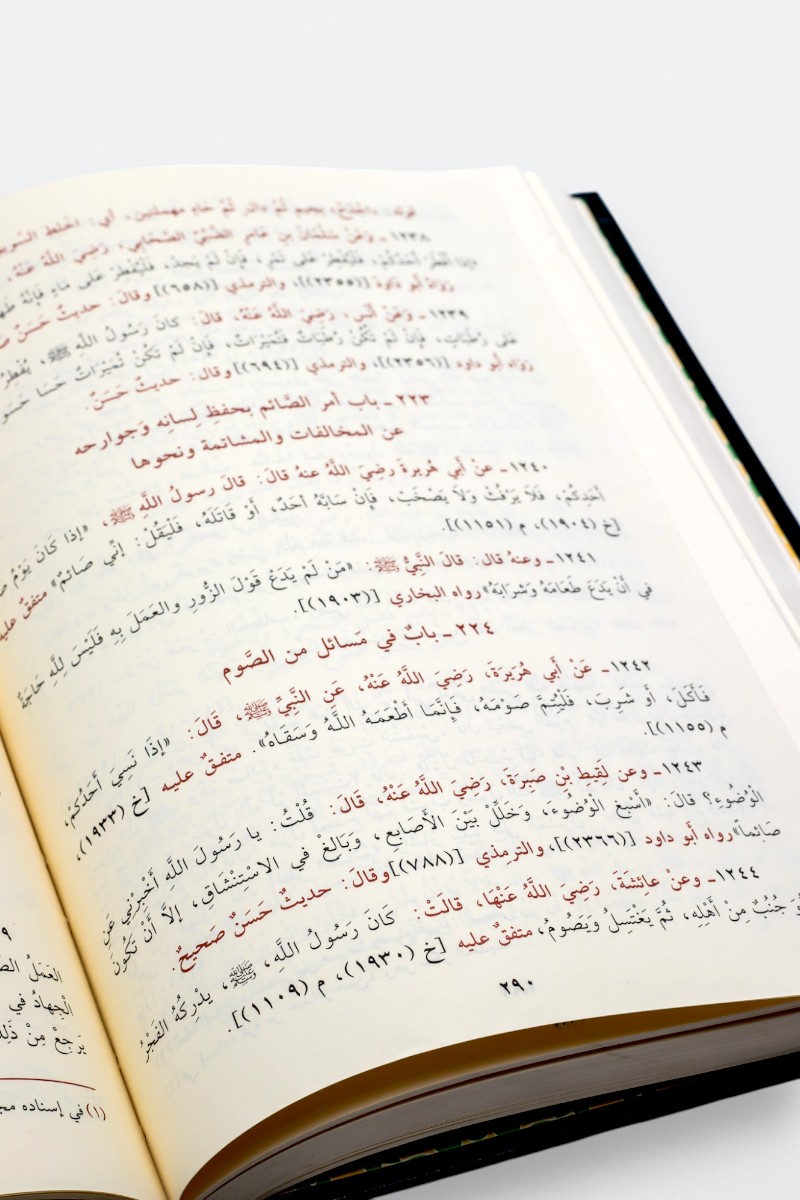 قوله: «اجْدَحْ» بجيم ثُمَّ دالٍ ثُمَّ حَاءٍ مهملتين، أي: اخلط السويق
١٢٣٨ـ وَعَنْ سَلْمَانَ بنِ عَامرٍ الضَّبِّيِّ الصَّحَابي، رَضِيَ اللَّهُ عَنْهُ،
«إذَا أَفْطَرَ أَحَدُكُمْ، فَلْيُفْطِرْ عَلى تَمْرٍ، فَإنْ لَمْ يَجِدْ، فَلْيُفْطِرْ عَلى مَاءٍ فَإنَّهُ
رَوَاهُ أبو دَاودَ [(٢٣٥٥)]، والترمذي [(٦٥٨)] وقالَ: حديثٌ حَسَنٌ
١٢٣٩ـ وَعَنْ أنَسٍ، رَضِيَ اللَّهُ عَنْهُ، قالَ: كانَ رَسُولُ اللَّهِ ﷺ، يُفْطِرُ
عَلى رُطَبَاتٍ، فَإنْ لَمْ تَكُنْ رُطَبَاتٌ فَتُمَيْرَاتٌ، فَإنْ لَمْ تَكُنْ تُمَيْرَاتٌ حَسَا
رَوَاه أبو داود [(٢٣٥٦)]، والترمذي [(٦٩٤)] وقال: حديثٌ حَسَنٌ.
٢٢٣ـ باب أمر الصَّائم بحفظِ لِسانِه وَجوارحه
عن المخالفات والمشاتمة ونحوها
١٢٤٠ـ عنْ أبي هُريرةَ رضيَ اللَّهُ عنهُ قالَ: قالَ رسولُ اللَّهِ ﷺ، «إذا كَانَ يَوْمُ
أَحَدِكُمْ، فَلَا يَرْفُثْ وَلَا يَصْخَبْ، فَإنْ سَابَّهُ أحَدٌ، أَوْ قَاتَلَهُ، فَلْيَقُلْ: إنِّي صَائمٌ» متفقٌ عليه
[خ (١٩٠٤)، م (١١٥١)].
١٢٤١ـ وعنهُ قال: قالَ النَّبِيُّ ﷺ: «مَنْ لَمْ يَدَعْ قَوْلَ الزُّورِ والعَمَلَ بِهِ فَلَيْسَ لِلَّهِ حَاجَةٌ
في أنْ يَدَعَ طَعَامَهُ وَشَرَابَهُ» رواه البخاري [(١٩٠٣)].
٢٢٤ـ بابٌ في مَسائل من الصَّوم
١٢٤٢ـ عَنْ أبي هُرَيرَةَ، رَضِيَ اللَّهُ عَنْهُ، عَنِ النَّبِيِّ ﷺ، قَالَ: «إذَا نَسِيَ أَحَدُكُمْ،
فَأَكَلَ، أَو شَرِبَ، فَلْيُتِمَّ صَوْمَهُ، فَإنَّمَا أَطْعَمَهُ اللَّهُ وَسَقَاهُ». متفقٌ عليه [خ (١٩٣٣)،
م (١١٥٥)].
١٢٤٣ـ وعن لَقِيطِ بْنِ صَبِرَةَ، رَضِيَ اللَّهُ عَنْهُ، قَالَ: قُلْتُ: يا رَسُولَ اللَّهِ أَخْبِرْنِي عَنِ
الْوُضُوءِ؟ قالَ: «أَسْبِغِ الْوُضُوءَ، وَخَلِّلْ بَيْنَ الأَصَابِعِ، وَبَالِغْ في الاسْتِنْشَاقِ، إلَّا أَنْ تَكُونَ
صَائِماً» رواه أبو داود [(٢٣٦٦)]، والترمذي [(٧٨٨)] وقالَ: حديثٌ حَسَنٌ صَحيحٌ.
١٢٤٤ـ وعنْ عائشَةَ، رَضِيَ اللَّهُ عَنْهَا، قَالَتْ: كَانَ رَسُولُ اللَّهِ، ﷺ، يدْرِكُهُ الفَجْرُ
جُنُبٌ مِنْ أَهْلِهِ، ثُمَّ يَغْتَسلُ ويَصُومُ، متفقٌ عليه [خ (١٩٣٠)، م (١١٠٩)].
٢٩٠
٩
العَمَلُ
الْجِهادُ في
يَرجعْ مِنْ
(١) في إسناده